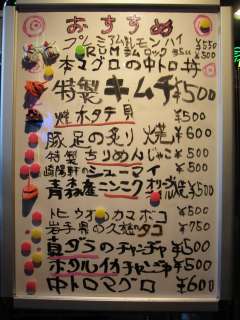 おすすめ
プレミアム生レモンハイ ¥550
RUMチョコロック ¥500
本マグロの中トロ丼
特製キムチ¥500
焼ホタテ貝 ¥500
豚足の炙り焼 ¥600
特製ちりめんじゃこ¥500
崎陽軒シューマイ ¥500
青森産ニンニクオリーブ焼¥500
トビウオのカマボコ ¥500
岩手県の久慈タコ ¥750
真ダラのチャンヂャ ¥500
ホタルイカチャンヂャ ¥500
中トロマグロ ¥600